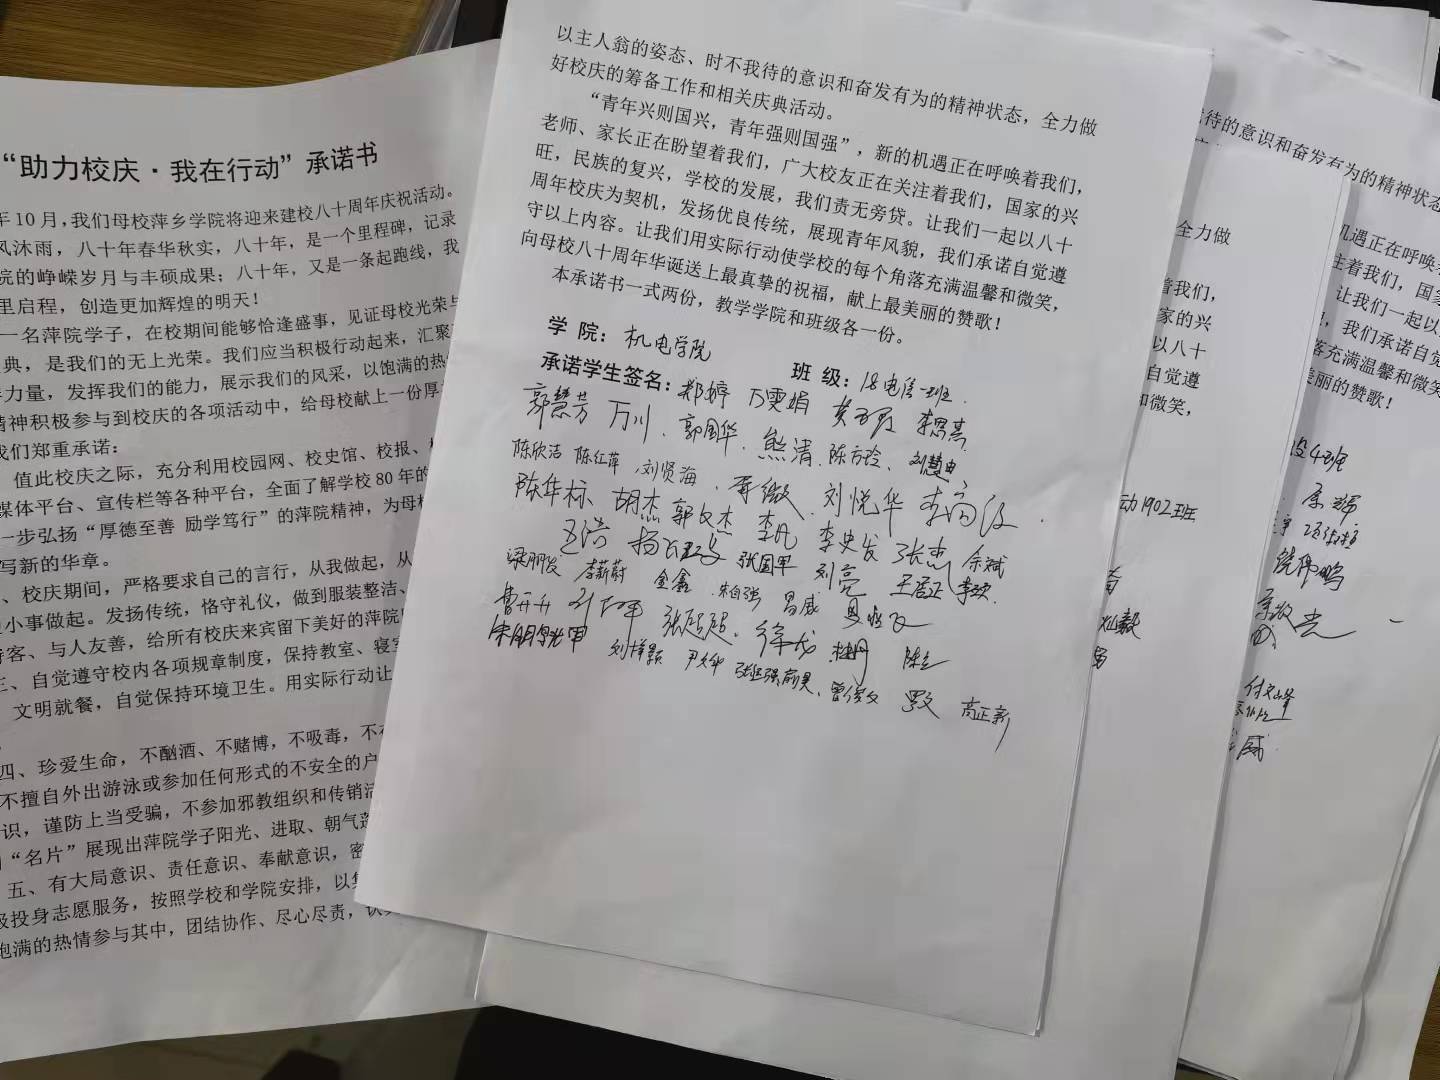 “助力校庆·我在行动”承诺书
年10月，我们母校萍乡学院将迎来建校八十周年庆祝活动。
风沐雨，八十年春华秋实，八十年，是一个里程碑，记录
院的峥嵘岁月与丰硕成果；八十年，又是一条起跑线，我
里启程，创造更加辉煌的明天！
一名萍院学子，在校期间能够恰逢盛事，见证母校光荣与
典，是我们的无上光荣。我们应当积极行动起来，汇聚
力量，发挥我们的能力，展示我们的风采，以饱满的热
精神积极参与到校庆的各项活动中，给母校献上一份厚
我们郑重承诺：
值此校庆之际，充分利用校园网、校史馆、校报、
媒体平台、宣传栏等各种平台，全面了解学校80年的
一步弘扬“厚德至善 励学笃行”的萍院精神，为母校
写新的华章。
、校庆期间，严格要求自己的言行，从我做起，从
小事做起。发扬传统，恪守礼仪，做到服装整洁、
待客、与人友善，给所有校庆来宾留下美好的萍院
三、自觉遵守校内各项规章制度，保持教室、寝
文明就餐，自觉保持环境卫生。用实际行动让
四、珍爱生命，不酗酒、不赌博，不吸毒，不
不擅自外出游泳或参加任何形式的不安全的户
识，谨防上当受骗，不参加邪教组织和传销活
“名片”展现出萍院学子阳光、进取、朝气蓬
五、有大局意识、责任意识、奉献意识，密
极投身志愿服务，按照学校和学院安排，以
饱满的热情参与其中，团结协作、尽心尽责，认
以主人翁的姿态、时不我待的意识和奋发有为的精神状态，全力做
好校庆的筹备工作和相关庆典活动。
“青年兴则国兴，青年强则国强”，新的机遇正在呼唤着我们，
老师、家长正在盼望着我们，广大校友正在关注着我们，国家的兴
旺，民族的复兴，学校的发展，我们责无旁贷。让我们一起以八十
周年校庆为契机，发扬优良传统，展现青年风貌，我们承诺自觉遵
守以上内容。让我们用实际行动使学校的每个角落充满温馨和微笑，
向母校八十周年华诞送上最真挚的祝福，献上最美丽的赞歌！
本承诺书一式两份，教学学院和班级各一份。
学 院：机电学院
班 级：18电信一班
承诺学生签名：郑婷 万雯娟 李思燕
郭慧芳 万川 郭国华 熊清 陈方玲
陈欣洁 陈红萍 刘贤海 刘悦华
陈华标 胡杰 郭文杰 李凡 李史发 张杰 余斌
王浩 张国军 刘亮
梁朋发 李薪蔚 金鑫 朱自强 昌威
曹开升 张超超 徐戈
尹久华 高正新
全力做
着我们，
家的兴
以八十
自觉遵
和微笑，
动1902班
待的意识和奋发有为的精神状态
机遇正在呼唤
注着我们，国家
让我们一起以
，我们承诺自觉
落充满温馨和微笑
美丽的赞歌！
4班
付文峰
威